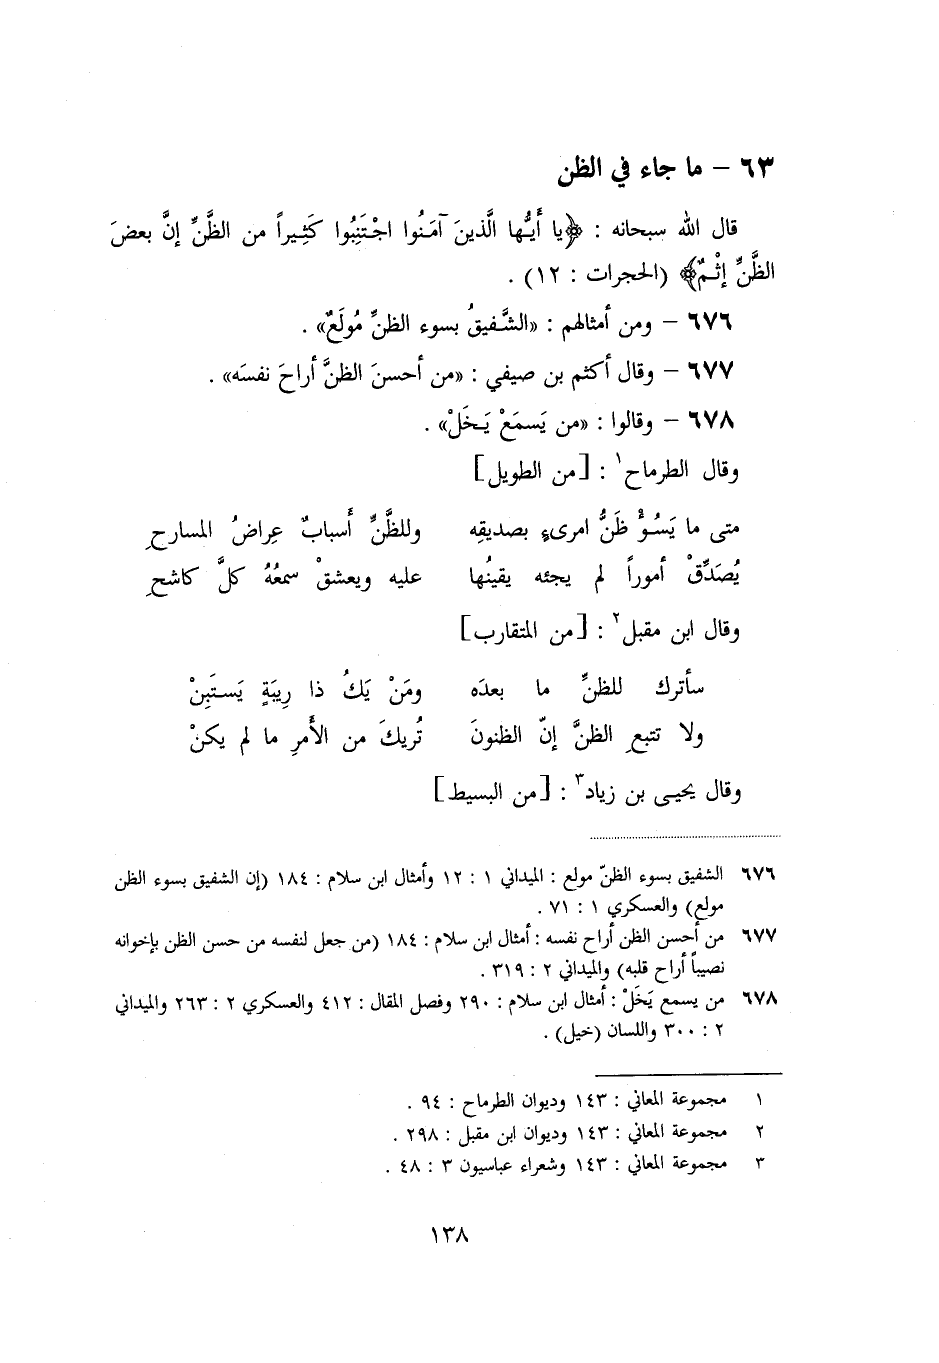 ٦٣ – ما جاء في الظن
قال الله سبحانه : ﴿يا أَيُّها الَّذينَ آمَنُوا اجْتَنِبُوا كَثِيراً من الظَّنِّ إنَّ بعضَ
الظَّنِّ إثْمٌ﴾ (الحجرات : ١٢) .
٦٧٦ – ومن أمثالهم : «الشَّفيقُ بسوء الظنِّ مُولَعٌ» .
٦٧٧ – وقال أكثم بن صيفي : «من أحسنَ الظنَّ أراحَ نفسَه» .
٦٧٨ – وقالوا : «من يَسمَعْ يَخَلْ» .
وقال الطرماح١ : [من الطويل]
متى ما يَسُؤْ ظَنُّ امرىءٍ بصديقِه وللظَّنِّ أَسبابٌ عِراضُ المسارحِ
يُصَدِّقْ أموراً لم يجئه يقينُها عليه ويعشقْ سمعُهُ كلَّ كاشحِ
وقال ابن مقبل٢ : [من المتقارب]
سأترك للظنِّ ما بعدَه ومَنْ يَكُ ذا رِيبَةٍ يَستَبِنْ
ولا تتبعِ الظنَّ إنّ الظنونَ تُريكَ من الأَمرِ ما لم يكنْ
وقال يحيى بن زياد٣ : [من البسيط]
٦٧٦ الشفيق بسوء الظنّ مولع : الميداني ١ : ١٢ وأمثال ابن سلام : ١٨٤ (إن الشفيق بسوء الظن
مولع) والعسكري ١ : ٧١ .
٦٧٧ من أحسن الظن أراح نفسه : أمثال ابن سلام : ١٨٤ (من جعل لنفسه من حسن الظن بإخوانه
نصيباً أراح قلبه) والميداني ٢ : ٣١٩ .
٦٧٨ من يسمع يَخَلْ : أمثال ابن سلام : ٢٩٠ وفصل المقال : ٤١٢ والعسكري ٢ : ٢٦٣ والميداني
٢ : ٣٠٠ واللسان (خيل) .
١ مجموعة المعاني : ١٤٣ وديوان الطرماح : ٩٤ .
٢ مجموعة المعاني : ١٤٣ وديوان ابن مقبل : ٢٩٨ .
٣ مجموعة المعاني : ١٤٣ وشعراء عباسيون ٣ : ٤٨ .
١٣٨